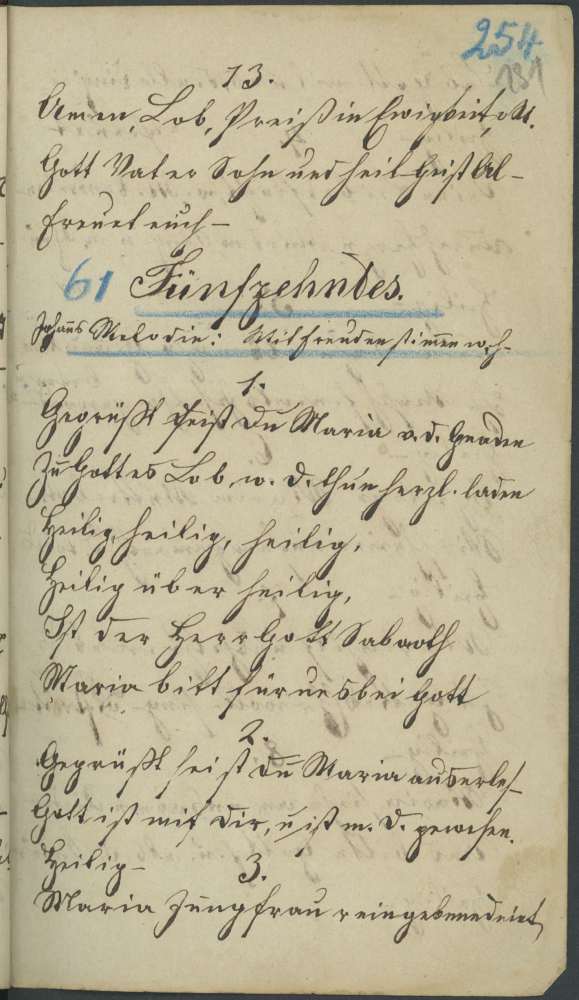 254
231
13.
Amen, Lob, Preiß in Ewigkeit,
Gott Vater Sohn und heil. Geist Al-
freuet euch -
61 Fünfzehndes.
Melodie: Mit freudenstimen
1.
Gegrüßt seist Du Maria v. d. Gnaden
Zu Gottes Lob, w. d. thun herzl. laden
Heilig, heilig, heilig,
Heilig über heilig,
Ist der Herr Gott Sabaoth
Maria bitt für uns bei Gott
2.
Gegrüßt seist du Maria auserles-
Gott ist mit dir, u ist m. d. gewesen.
Heilig -
3.
Maria Jungfrau rein gebenedeiet,